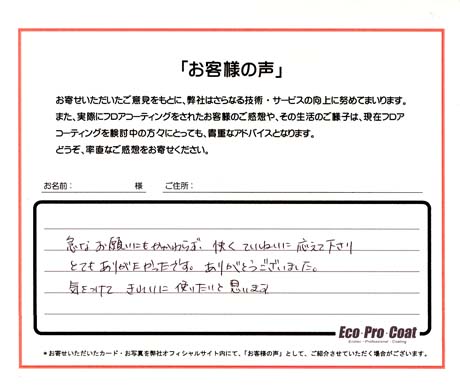 「お客様の声」
お寄せいただいたご意見をもとに、弊社はさらなる技術・サービスの向上に努めてまいります。
また、実際にフロアコーティングをされたお客様のご感想や、その生活のご様子は、現在フロア
コーティングを検討中の方々にとっても、貴重なアドバイスとなります。
どうぞ、率直なご感想をお寄せください。
お名前： 様 ご住所：
急なお願いにもかかわらず、快く ていねいに 応えて下さり
とても ありがたかったです。 ありがとうございました。
気をつけて きれいに 使いたいと 思います
Eco Pro Coat
Ecolead - Professional - Coating
＊お寄せいただいたカード・お写真を弊社オフィシャルサイト内にて、「お客様の声」として、ご紹介させていただく場合がございます。